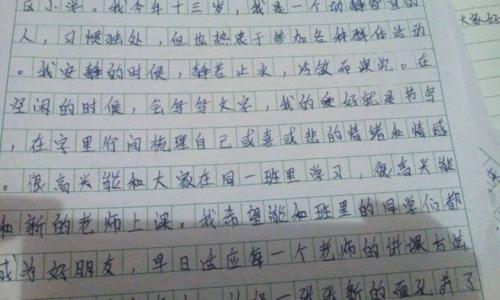 区小学。我今年十三岁，我是一个动静皆宜的
人，习惯独处，但也热衷于参加各种群体活动
。我安静的时候，静若止水，内敛而深沉。在
空闲的时候，会写写文字，我的爱好就是书写
，在字里行间梳理自己或喜或悲的情绪和情感
。很高兴能和大家在同一班里学习，很高兴能
和新的老师上课。我希望能和班里的同学们都
成为好朋友，早日适应每一个老师的讲课方法
一张张新的面孔
大家好